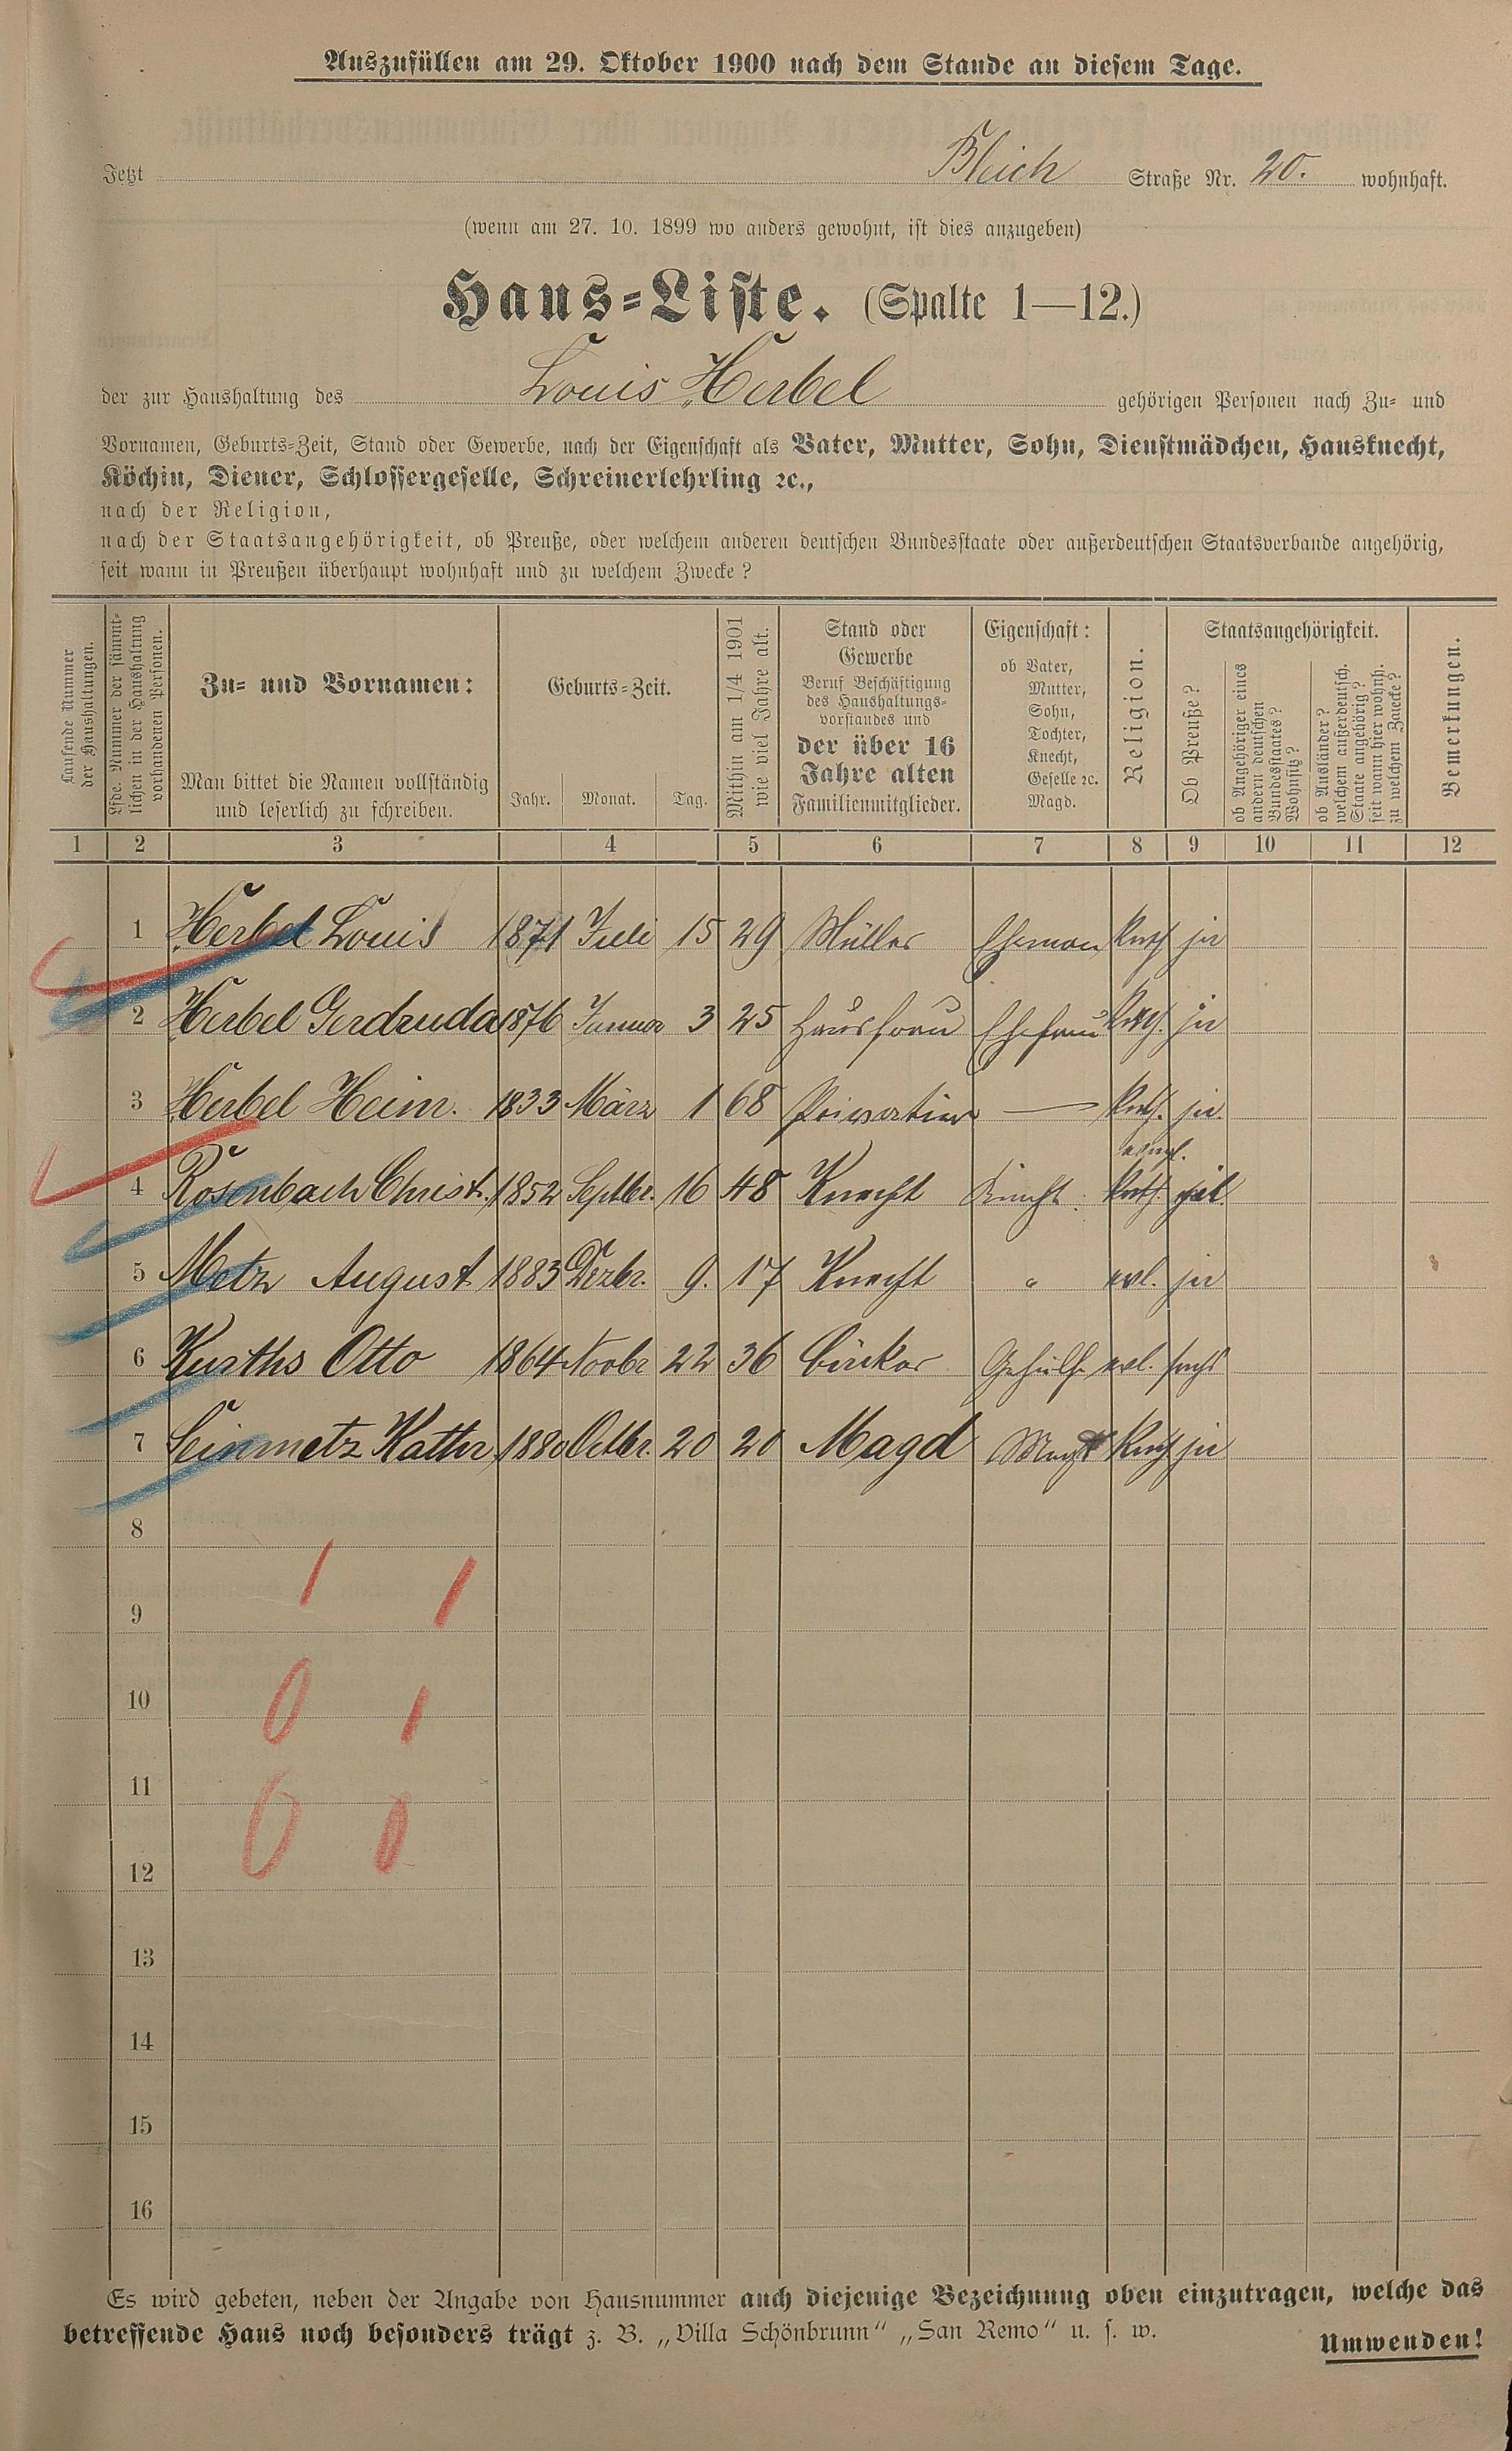 Auszufüllen am 29. Oktober 1900 nach dem Stande an diesem Tage.
Jetzt Bleich Straße Nr. 20. wohnhaft.
(wenn am 27. 10. 1899 wo anders gewohnt, ist dies anzugeben)
Haus-Liste. (Spalte 1—12.)
der zur Haushaltung des Louis Herbel gehörigen Personen nach Zu- und
Vornamen, Geburts-Zeit, Stand oder Gewerbe, nach der Eigenschaft als Vater, Mutter, Sohn, Dienstmädchen, Hausknecht,
Köchin, Diener, Schlossergeselle, Schreinerlehrling ꝛc.,
nach der Religion,
nach der Staatsangehörigkeit, ob Preuße, oder welchem anderen deutschen Bundesstaate oder außerdeutschen Staatsverbande angehörig,
seit wann in Preußen überhaupt wohnhaft und zu welchem Zwecke?
Laufende Nummer
der Haushaltungen.
Lfde. Nummer der sämmt-
lichen in der Haushaltung
vorhandenen Personen.
Zu- und Vornamen:
Man bittet die Namen vollständig
und leserlich zu schreiben.
Geburts-Zeit.
Jahr. Monat. Tag.
Mithin am 1/4 1901
wie viel Jahre alt.
Stand oder
Gewerbe
Beruf Beschäftigung
des Haushaltungs-
vorstandes und
der über 16
Jahre alten
Familienmitglieder.
Eigenschaft:
ob Vater,
Mutter,
Sohn,
Tochter,
Knecht,
Geselle ꝛc.
Magd.
Religion.
Staatsangehörigkeit.
Ob Preuße?
ob Angehöriger eines
andern deutschen
Bundesstaates?
Wohnsitz?
ob Ausländer?
welchem außerdeutsch.
Staate angehörig?
seit wann hier wohnh.
zu welchem Zwecke?
Bemerkungen.
1 2 3 4 5 6 7 8 9 10 11 12
1 Herbel Louis 1871 Juli 15 29 Müller Ehemann kath ja
2 Herbel Gerdruda 1876 Januar 3 25 Hausfrau Ehefrau kath. ja
3 Herbel Heinr. 1833 März 1 68 Privatier — kath. ja.
evngl.
4 Rosenbach Christ. 1852 Septbr. 16 48 Knecht Knecht kath.
5 Metz August 1883 Dezbr. 9. 17 Knecht " evl. ja
6 Kurths Otto 1864 Novbr 22 36 Bäcker Gehülfe evl. sachs
7 Seinmetz Kathr 1880 Octbr. 20 20 Magd Magd kath ja
8
1 1
9
10 0 1
11
0 0
12
13
14
15
16
Es wird gebeten, neben der Angabe von Hausnummer auch diejenige Bezeichnung oben einzutragen, welche das
betreffende Haus noch besonders trägt z. B. „Villa Schönbrunn“ „San Remo“ u. s. w.
Umwenden!